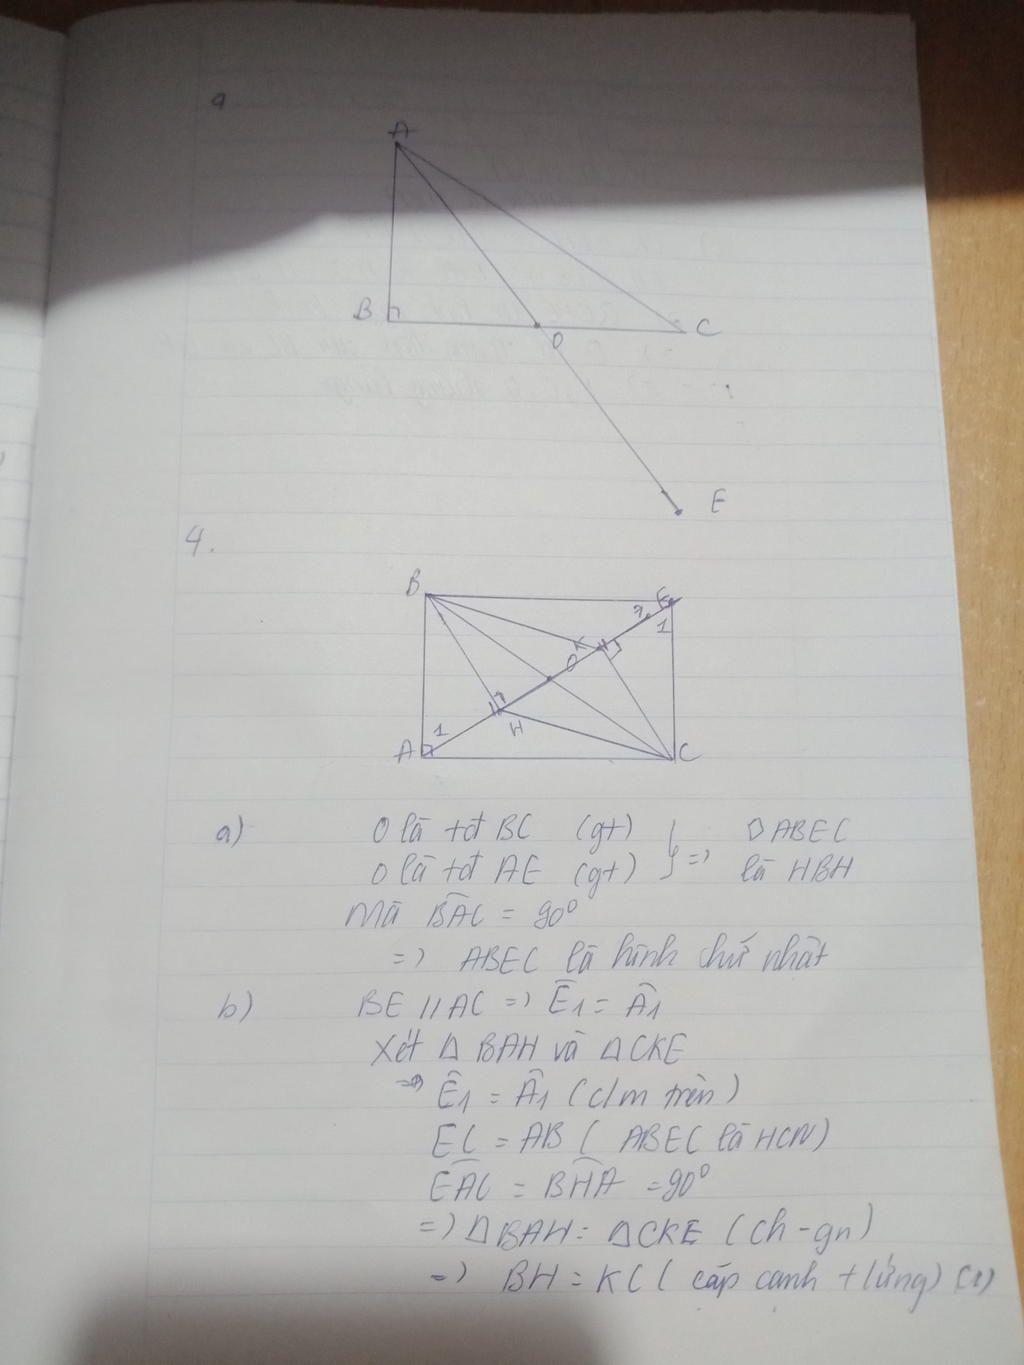 9
A
B
O
C
E
4.
B
E
2
1
K
O
1
H
A
C
a) O là tđ BC (gt)
O là tđ AE (gt) } => ▱ ABEC là HBH
Mà BÂC = 90°
=> ABEC là hình chữ nhật
b) BE // AC => Ê1 = Â1
Xét Δ BAH và Δ CKE
=> Ê1 = Â1 (c/m trên)
EC = AB ( ABEC là HCN)
EAC = BHA = 90°
=> Δ BAH = Δ CKE (ch - gn)
=> BH = KC ( cáp cạnh t/ứng) (1)